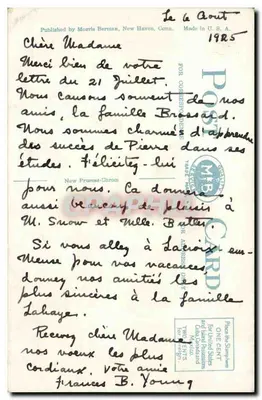 Le 6 Aout
Published by Morris Berman, New Haven, Conn. Made in U. S. A.
1925
Chère Madame
Merci bien de votre
lettre du 21 Juillet.
Nous causons souvent de nos
amis, la famille Brossard.
Nous sommes charmés d'apprendre
des succès de Pierre dans ses
études. Félicitez-lui
pour nous. Ça donnera
aussi beaucoup de plaisir à
M. Snow et Mlle. Butler
Si vous allez à Lacroix-sur-
Meuse pour vos vacances,
donnez nos amitiés les
plus sincères à la famille
Lahaye.
Recevez chère Madame
nos voeux les plus
cordiaux. Votre amie
Frances B. Young
POST CARD
MB
Place the Stamp here
ONE CENT
For United States
and Island Possessions
Cuba, Canada and
Mexico
TWO CENTS
For Foreign